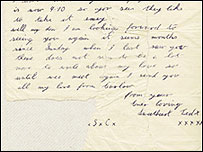 is now 9.10 so you see they like
to take it away
well my dear I am looking forward to
seeing you again it seems months
since Sunday when I last saw you
there does not seem to be a lot
more to write about my love so
until we meet again I send you
all my love from London
From your
Ever loving
Sweetheart Ted x
x x x x